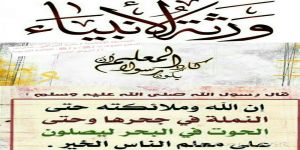 ورثة الأنبياء
كاد المعلم أن يكون رسولا
قال رسول الله صلى الله عليه وسلم :
إن الله وملائكته حتى
النملة في جحرها وحتى
الحوت في البحر ليصلون
على معلم الناس الخير .